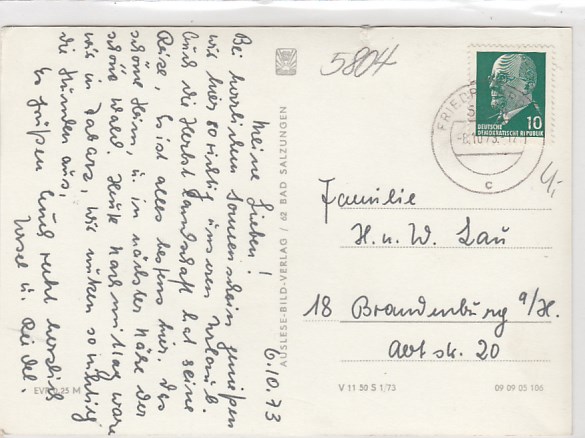 6.10.73
Meine Lieben!
Bei herrlichem Sonnenschein genießen
wir hier so richtig unseren Urlaub.
Und die Herbstlandschaft hat seine
Reise, Es ist alles bestens hier. Das
schöne Heim, u. in nächster Nähe der
schöne Wald. Heute Nachmittag waren
wir in Tabarz, wir nutzen so richtig
die Stunden aus.
Es grüßen Euch recht herzlich
Ursel u.
EVP 0,25 M
AUSLESE-BILD-VERLAG / 62 BAD SALZUNGEN
5804
10
DEUTSCHE
DEMOKRATISCHE REPUBLIK
FRIEDR
-8.10.73.
c
4,-
Familie
H. u. W. Lau
18 Brandenburg a/H.
str. 20
V 11 50 S 1/73
09 09 05 106